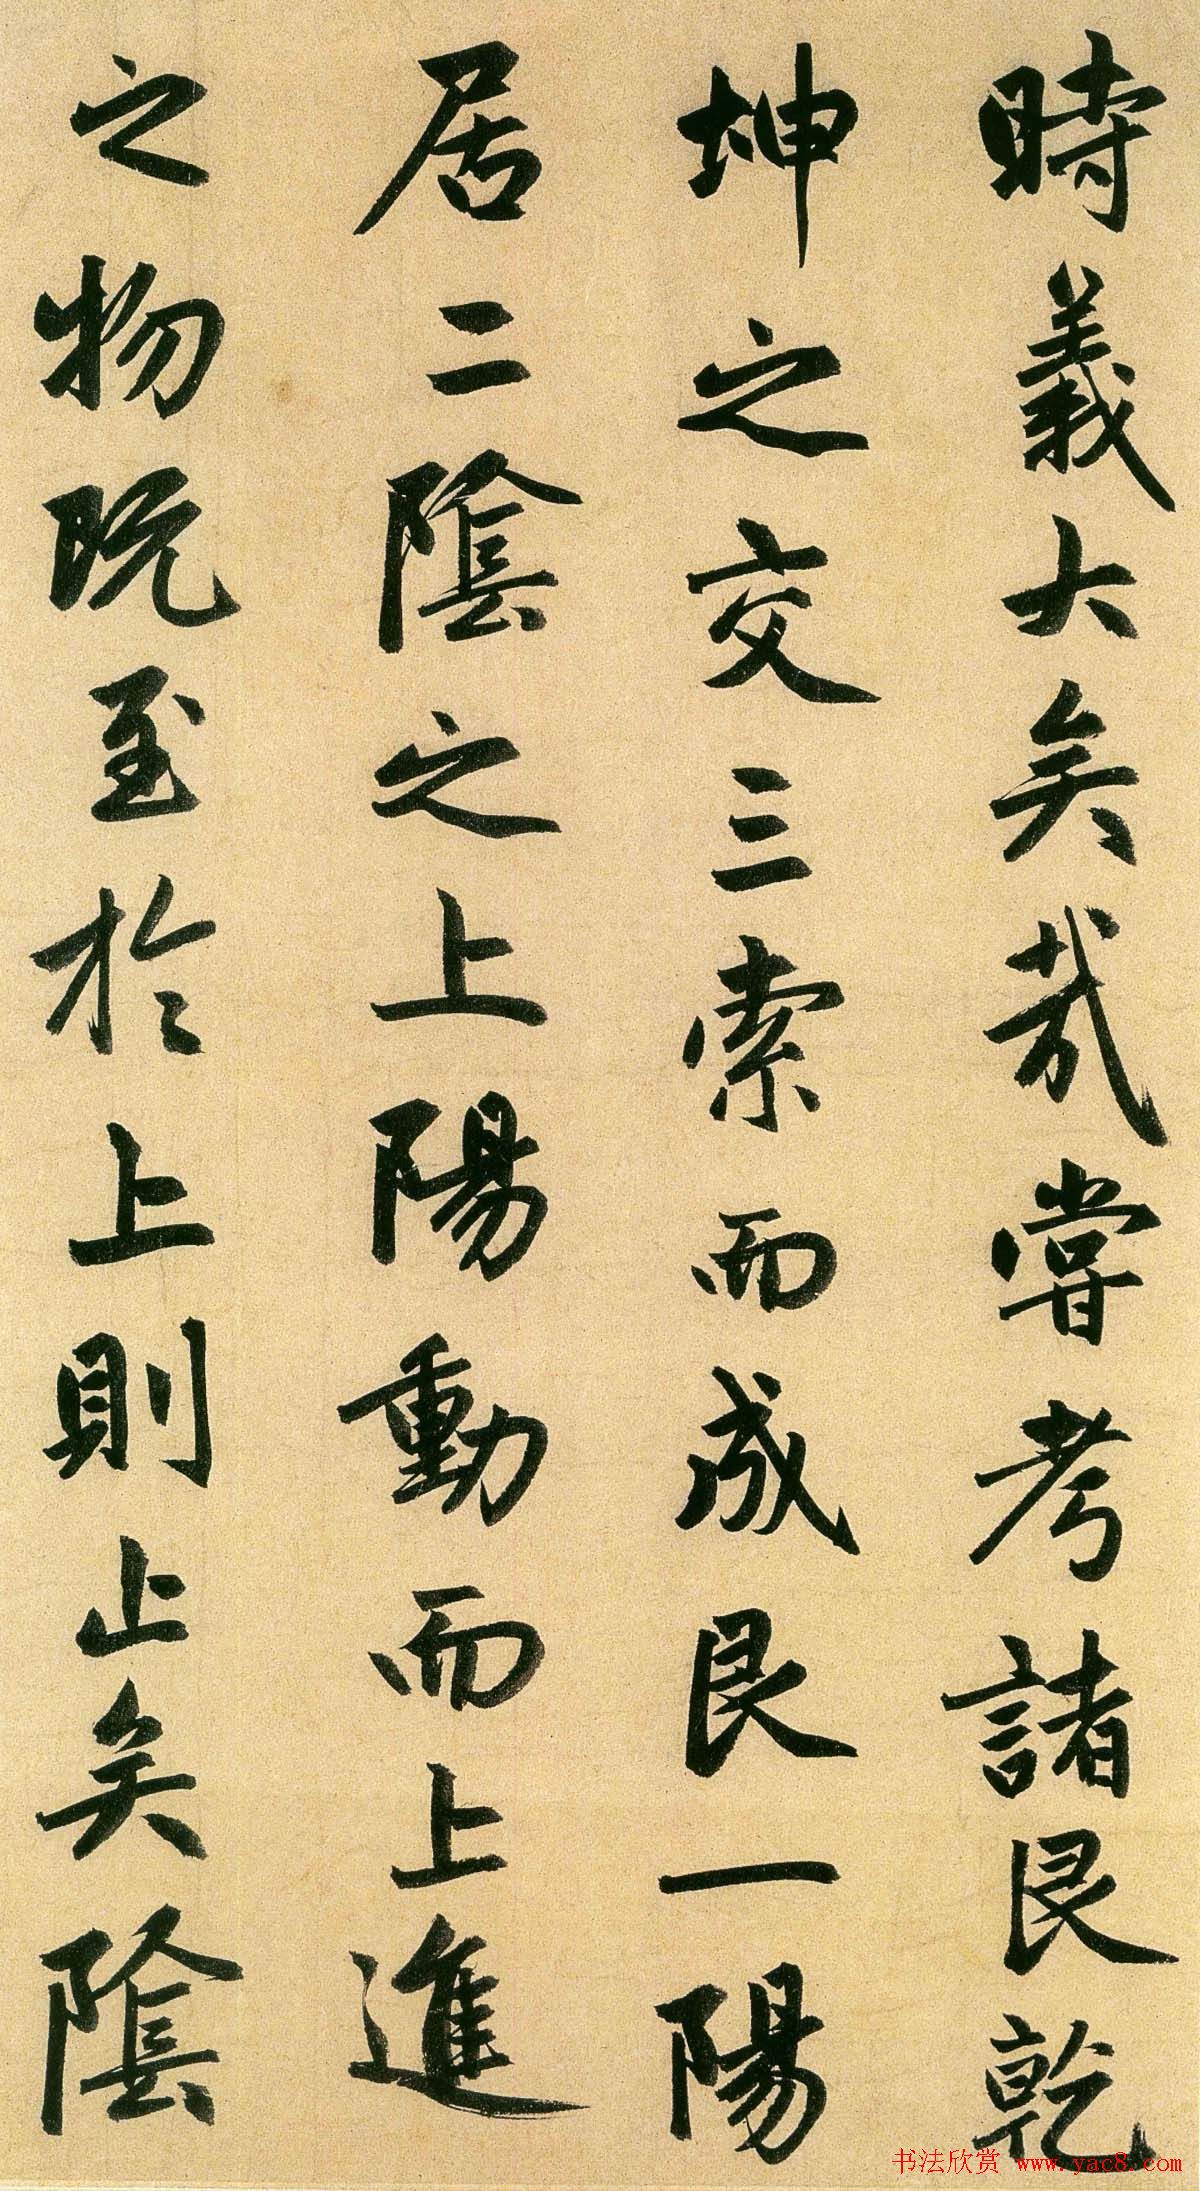 時義大矣哉嘗考諸艮乾
坤之交三索而成艮一陽
居二陰之上陽動而上進
之物既至於上則止矣陰
书法欣赏 www.yac8.com